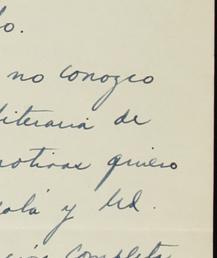 lo.
no conozco
literaria de
motivos quiero
olá y Ud.
ción completa